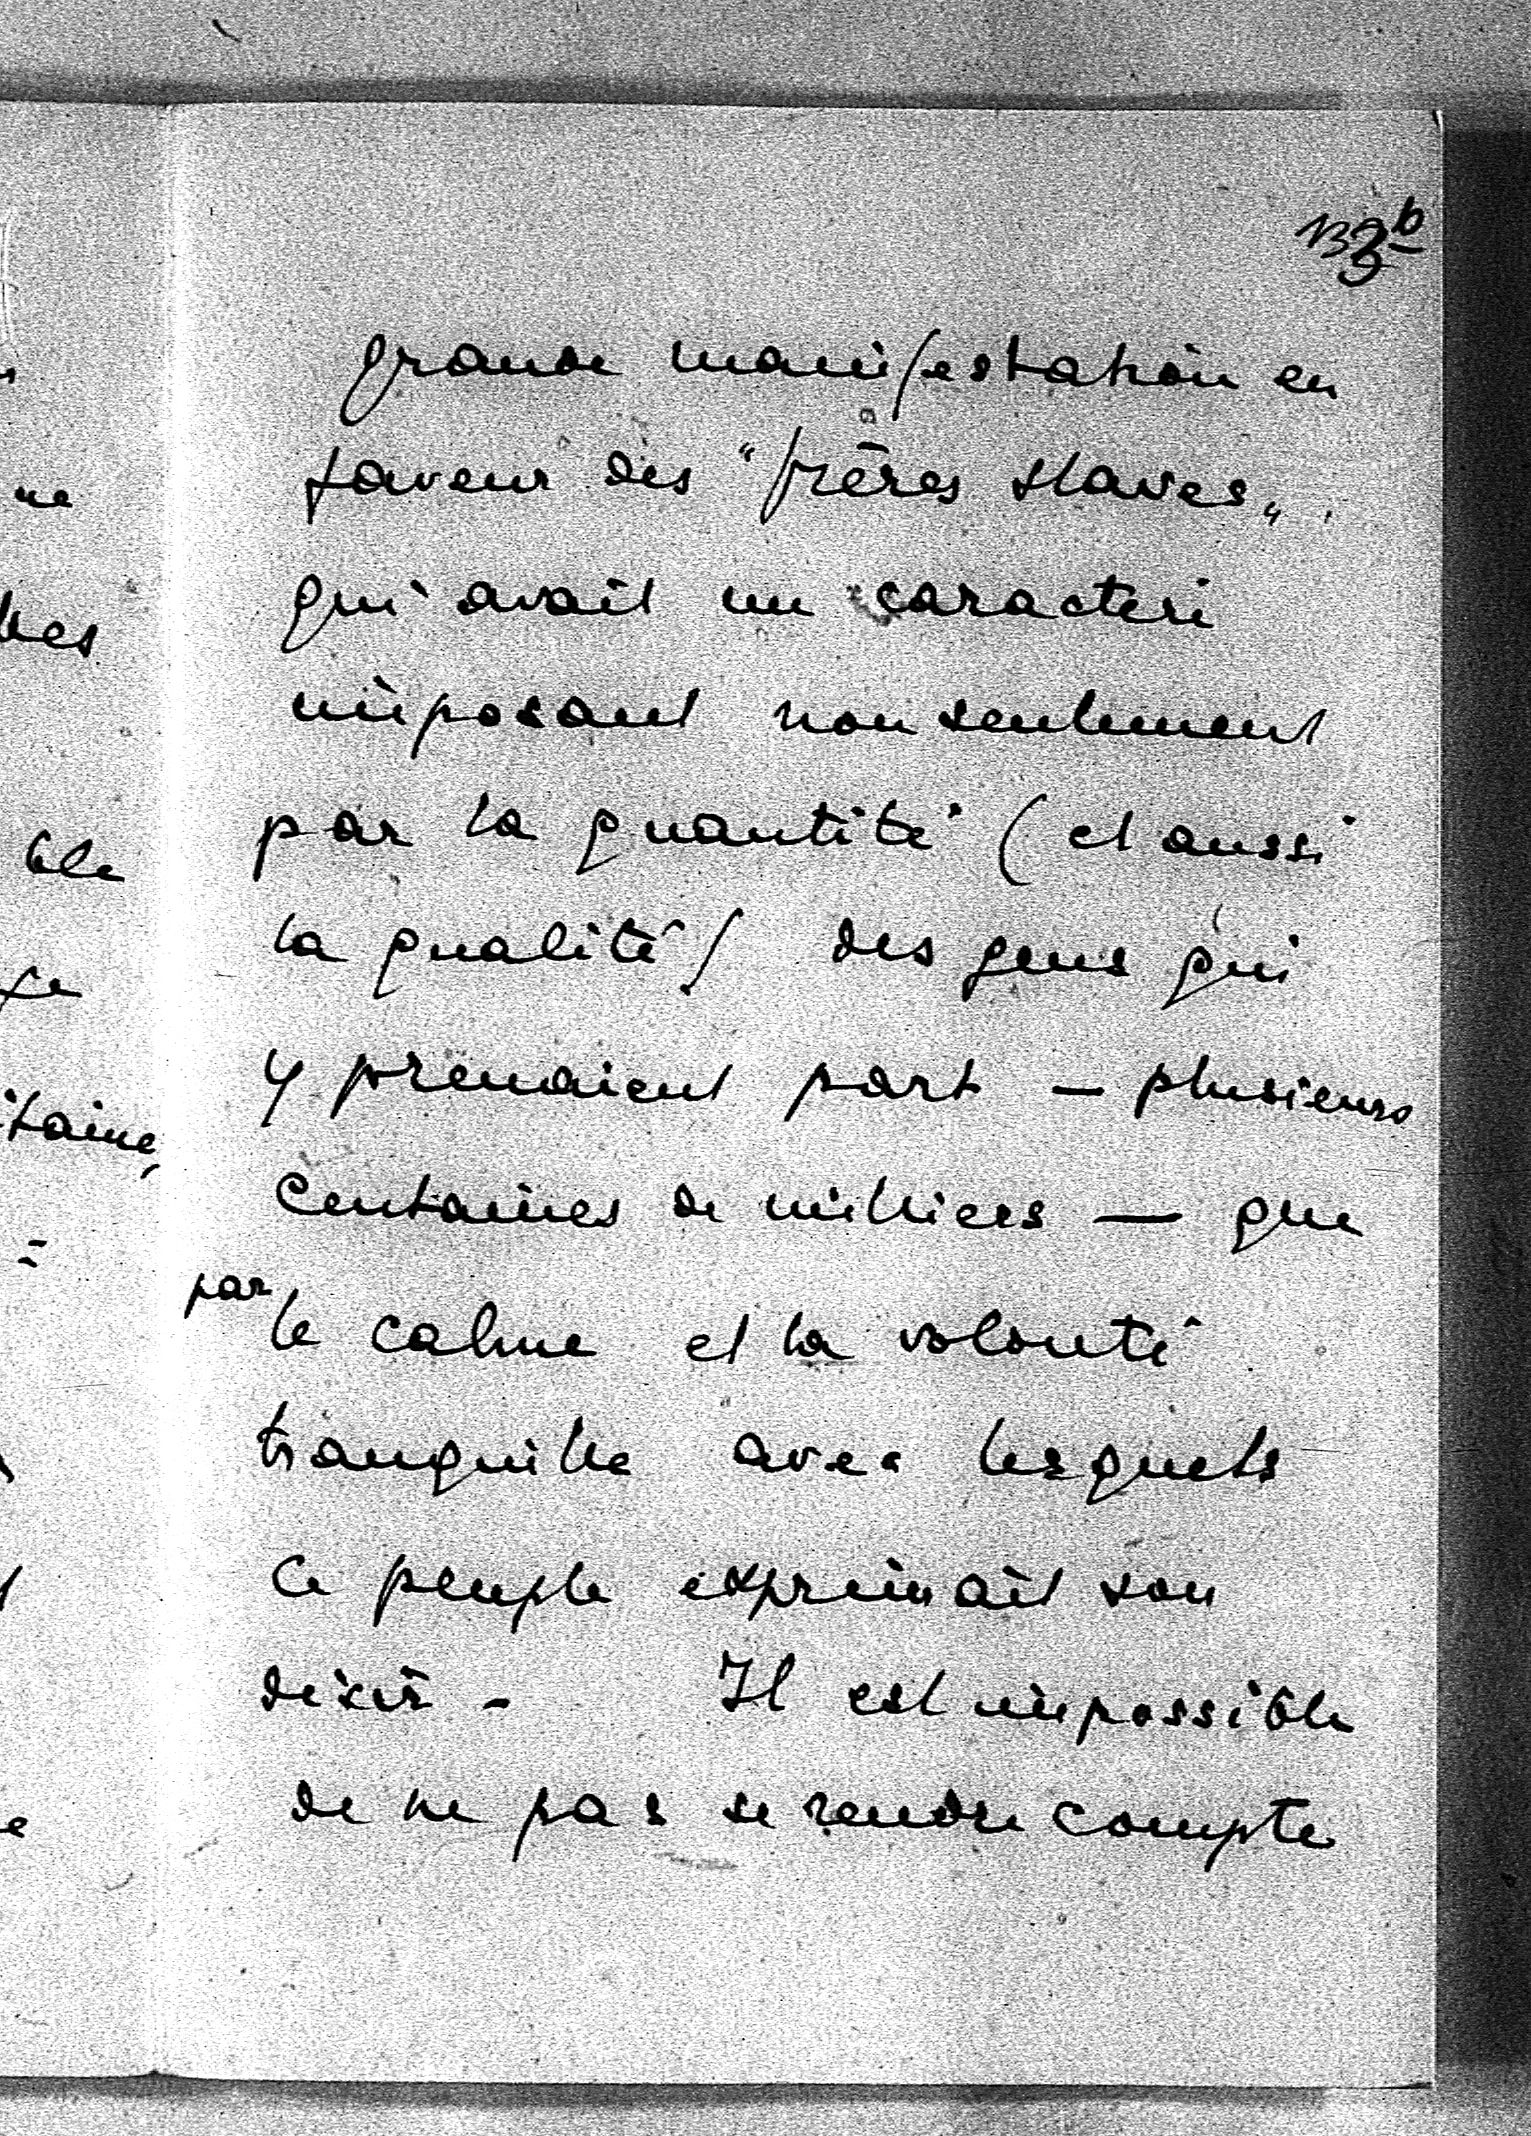 133b
grande manifestation en
faveur des "frères slaves„
qui avait un caractère
imposant non seulement
par la quantité (et aussi
la qualité) des gens qui
y prenaient part — plusieurs
Centaines de milliers — que
par le calme et la volonté
tranquille avec lesquels
ce peuple exprimait son
désir - Il est impossible
de ne pas se rendre compte